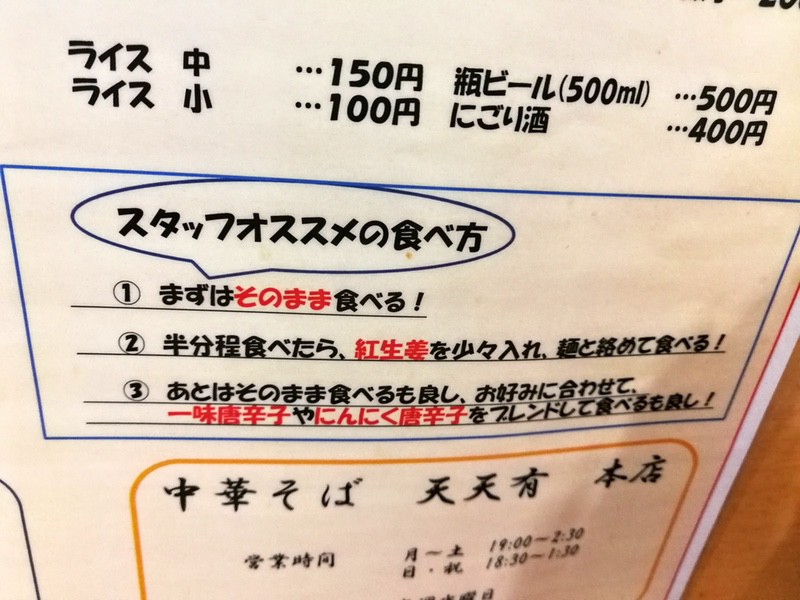 ライス 中 …150円 瓶ビール(500ml) …500円
ライス 小 …100円 にごり酒 …400円
スタッフオススメの食べ方
① まずはそのまま食べる!
② 半分程食べたら、紅生姜を少々入れ、麺と絡めて食べる!
③ あとはそのまま食べるも良し、お好みに合わせて、
一味唐辛子やにんにく唐辛子をブレンドして食べるも良し!
中華そば 天天有 本店
営業時間 月～土 19:00～2:30
日・祝 18:30～1:30